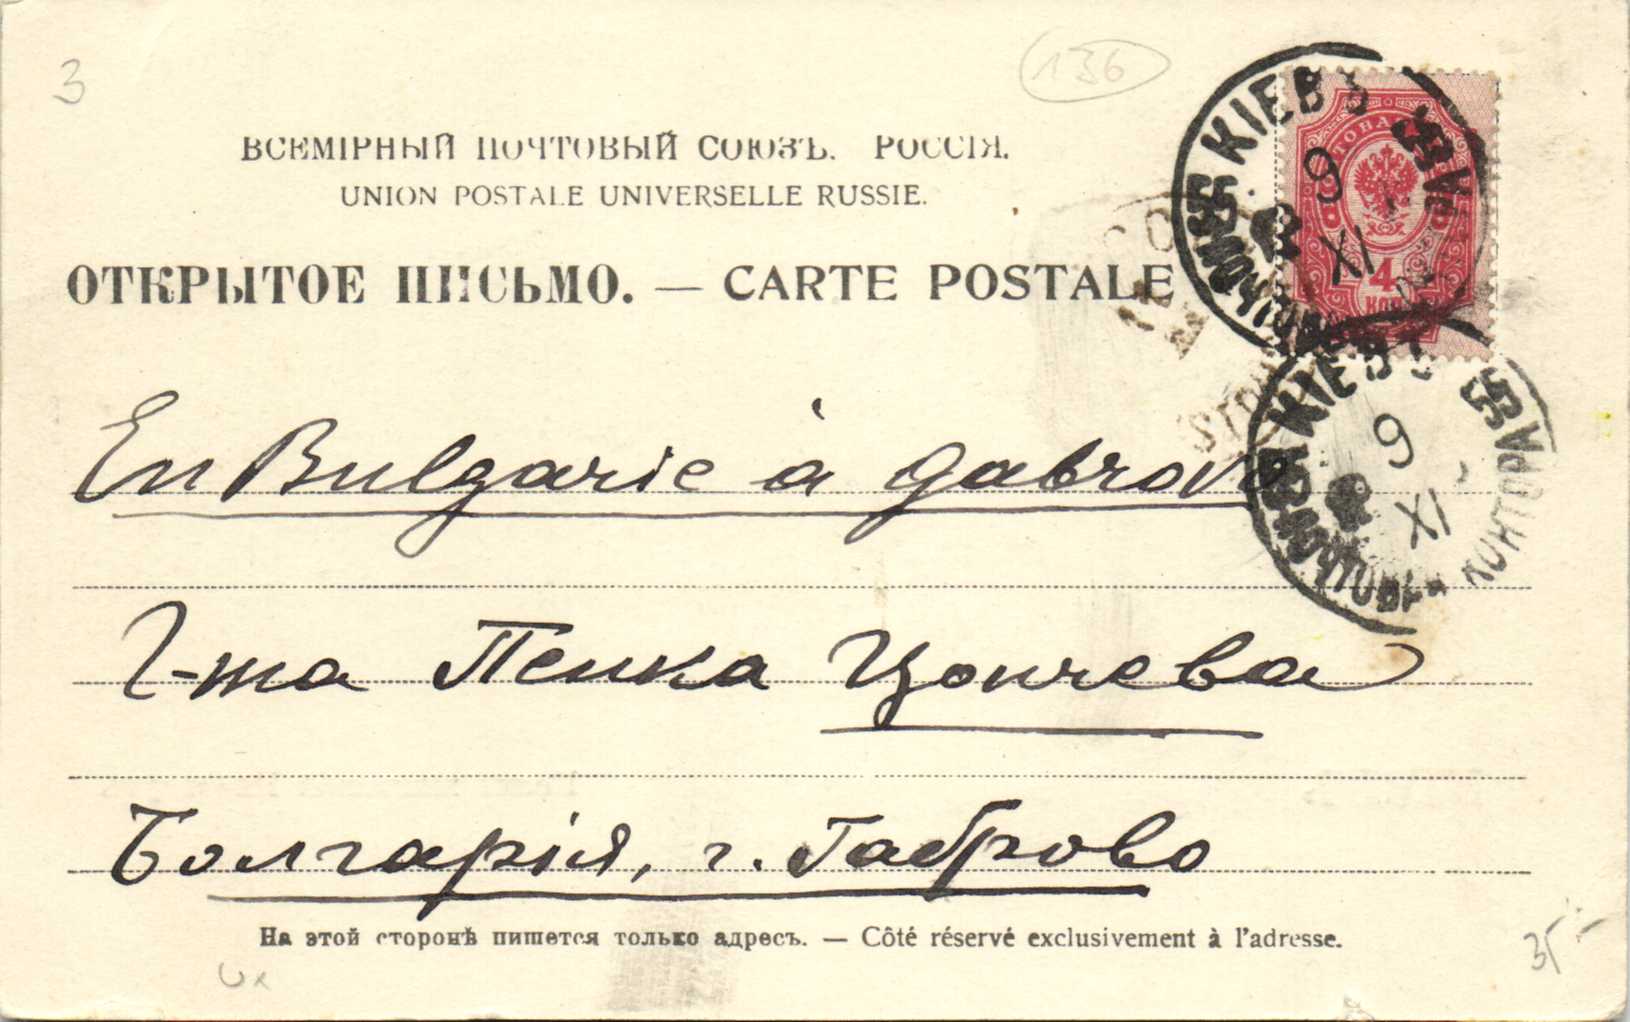 3
136
ВСЕМІРНЫЙ ПОЧТОВЫЙ СОЮЗЪ. РОССІЯ.
UNION POSTALE UNIVERSELLE RUSSIE.
ОТКРЫТОЕ ПИСЬМО. — CARTE POSTALE
КІЕВЪ
9
XI
4
КІЕВЪ
9
XI
ПОЧТОВАЯ КОНТОРА
En Bulgarie à Gabrovo
Г-жа Пенка Цончева
Болгарія, г. Габрово
На этой сторонѣ пишется только адресъ. — Côté réservé exclusivement à l'adresse.
35-